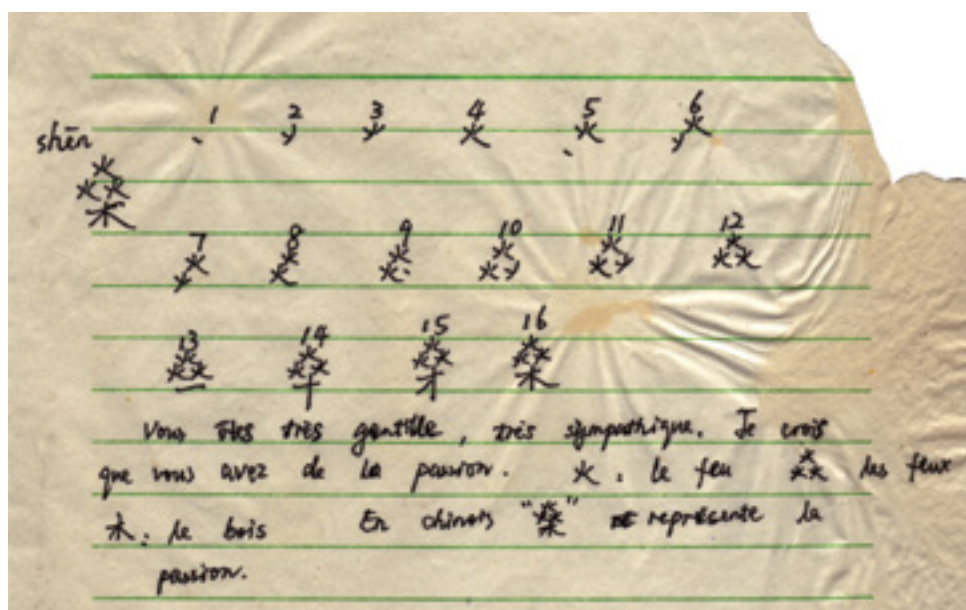 1 2 3 4 5 6
shēn
燊
7 8 9 10 11 12
13 14 15 16
Vous êtes très gentille, très sympathique. Je crois
que vous avez de la passion. 火. le feu 焱 les feux
木. le bois En chinois "燊" représente la
passion.